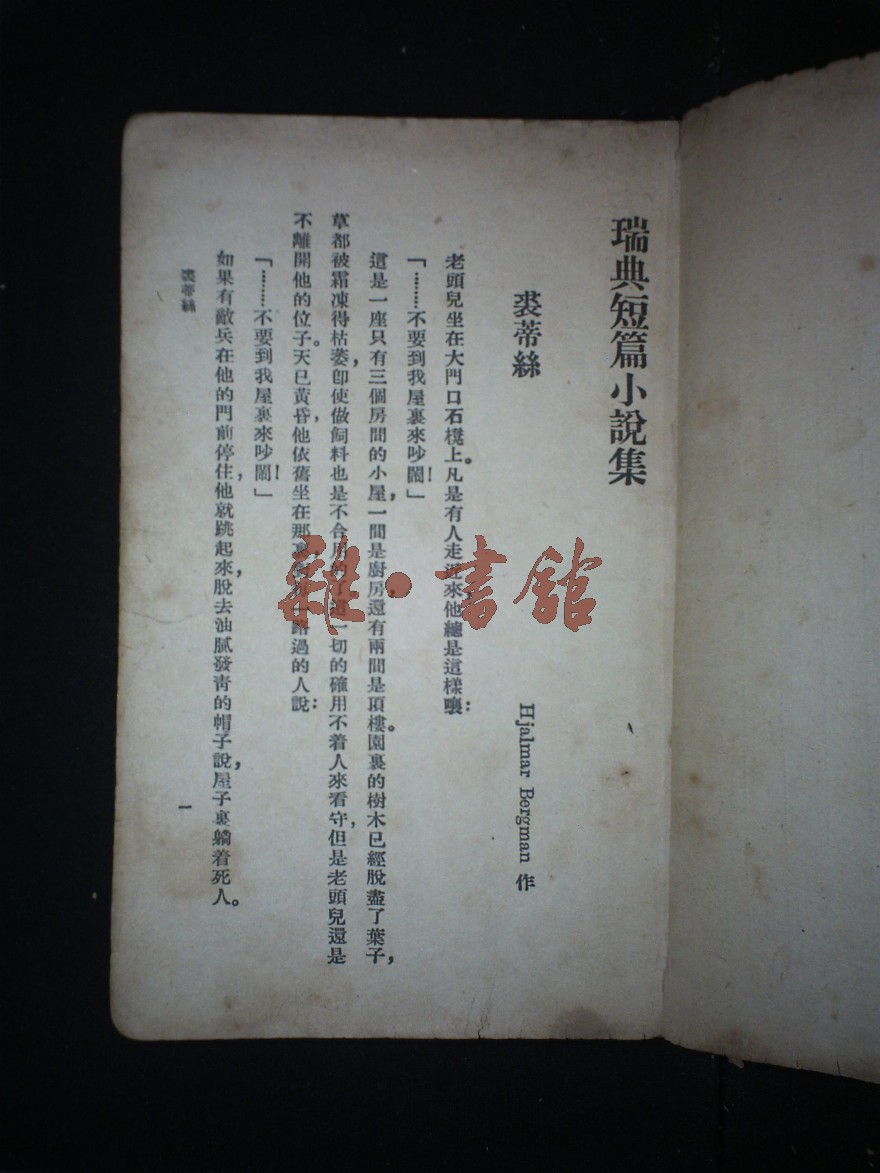 瑞典短篇小說集
裘蒂絲
Hjalmar Bergman 作
老頭兒坐在大門口石櫈上。凡是有人走近來,他總是這樣嚷:
「………不要到我屋裏來吵鬧!」
這是一座只有三個房間的小屋,一間是廚房,還有兩間是頂樓。園裏的樹木已經脫盡了葉子,
草都被霜凍得枯萎,卽使做飼料也是不合用的了。這一切的確用不着人來看守,但是老頭兒還是
不離開他的位子。天已黃昏,他依舊坐在那裏,對每一路過的人說:
「………不要到我屋裏來吵鬧!」
如果有敵兵在他的門前停住,他就跳起來,脫去油膩發靑的帽子說,屋子裏躺着死人。
裘蒂絲
一
雜·書館